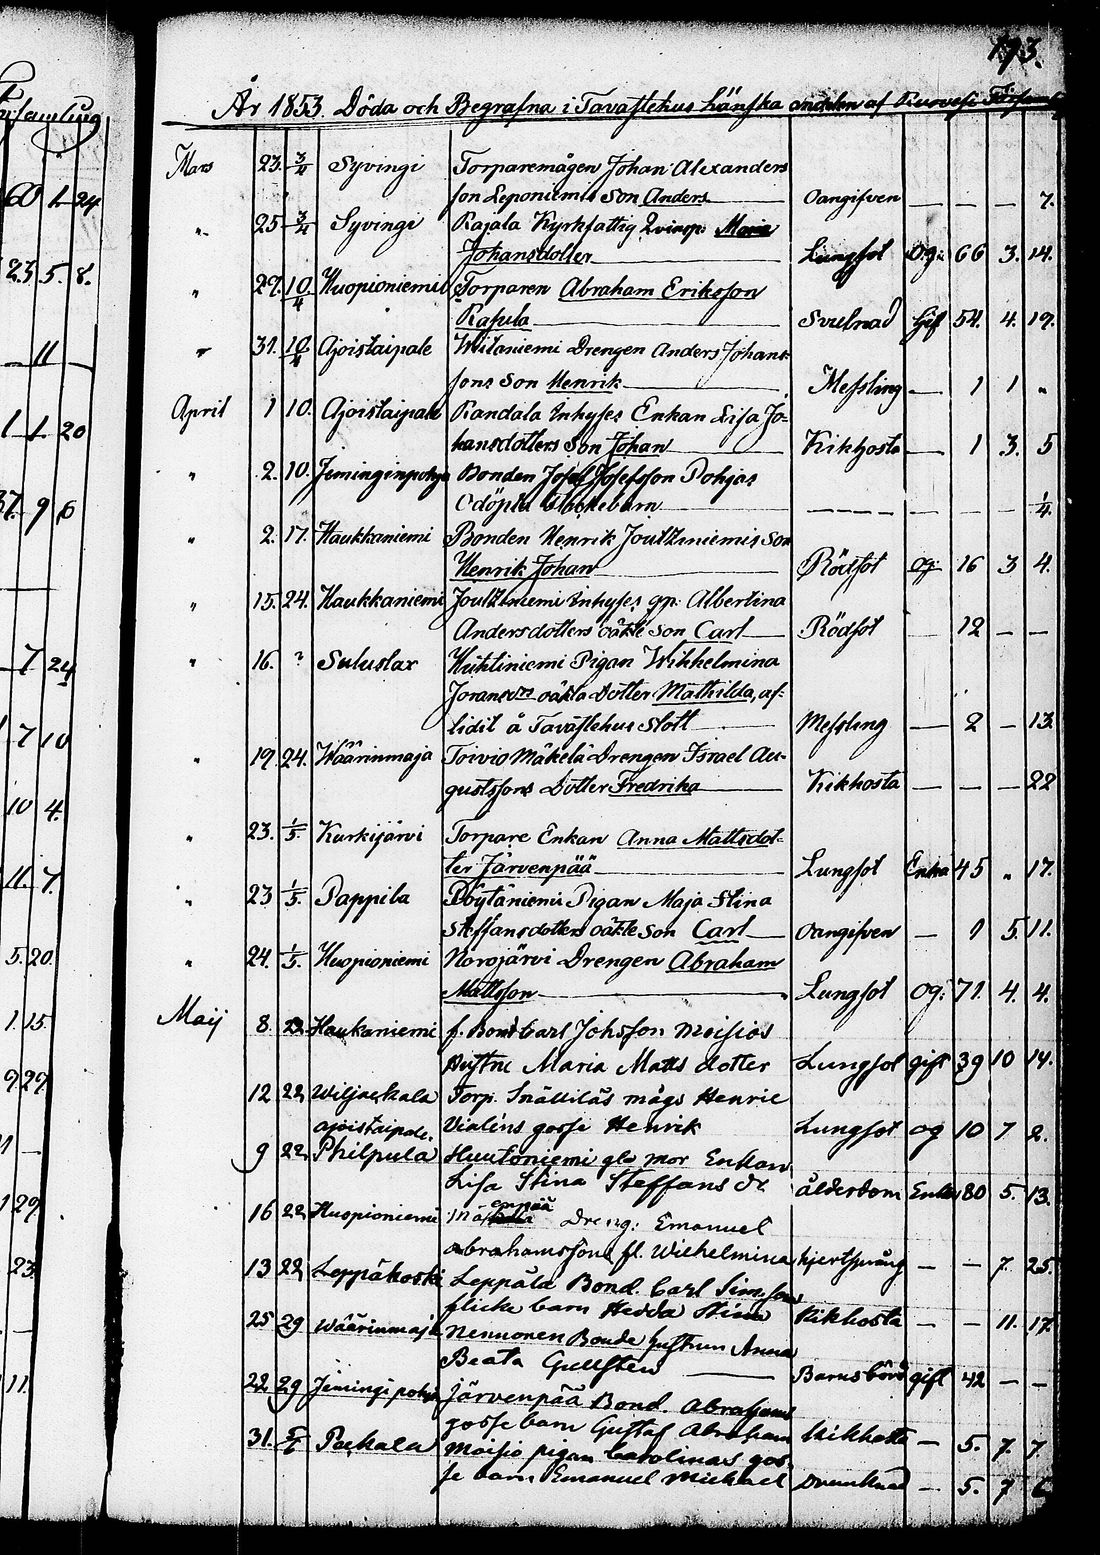 193.
År 1853. Döda och Begrafna i Tavastehus Länska andelen af Ruovesi Församl
Mars 23. 3/4 Syvingi Torparemågen Johan Alexanders
son Leponiemis Son Anders oangifven — — — 7.
" 25 3/4 Syvingi Rajala Kyrkfattig Qvinsp: Maria
Johansdotter Lungsot Og: 66 3. 14.
" 29. 10/4 Huopioniemi Torparen Abraham Eriksson
Rapula Svulnad Gift 54. 4. 19.
" 31. 10/4 Ajostaipale Drengen Anders Johans-
sons Son Henrik Messling — 1 1 "
April 1 10. Ajostaipale Randala Inhyses Enkan Lisa Jo-
hansdotters Son Johan Kikhosta — 1 3. 5
" 2. 10. Jäminginpohja Bonden Josef Josefsson Pohjas
Odöpta Flickebarn — — — — 1/4.
" 2. 17. Haukkaniemi Bonden Henrik Joutzniemis Son
Henrik Johan Rödsot og: 16 3 4.
" 15. 24. Haukkaniemi Joutzniemi Inhyses gp: Albertina
Andersdotters oäkta Son Carl Rödsot 12 — —
" 16. ? Suluslax Huhtiniemi Pigan Wilhelmina
oäkta Dotter Mathilda, af-
lidit å Tavastehus slott Messling — 2 — 13.
" 19. 24. Wäärinmaja Toivio Mäkelä Drengen Israel Au-
gustssons Dotter Fredrika Kikhosta — — — 22
" 23. 1/5 Kurkijärvi Torpare Enkan Anna Mattsdot-
ter Järvenpää Lungsot Enka 45 " 17.
" 23 1/5. Pappila Pöytäniemi Pigan Maja Stina
Steffansdotters oäkte son Carl oangifven — 1 5. 11.
" 24. 1/5. Huopioniemi Norojärvi Drengen Abraham
Mattsson Lungsot Og: 71. 4. 4.
Maij 8. 22 Haukaniemi f. Bond Carl Johsson Moisios
Hustru Maria Matts dotter Lungsot gift 39 10 14.
12 22, Wiljackala Torp. Snälliläs mågs Henric
ajostaipale. Vialéns gosse Henrik Lungsot og 10 7 2.
9 22. Philpula Huutoniemi gla mor Enkan
Lisa Stina Steffans dr ålderdom Enka 80 5. 13.
16 22 Huopioniemi Dreng: Emanuel
Abrahamssons fl. Wilhelmina hjertsprång — — 7. 25.
13 22, Leppäkoski Leppälä Bond. Carl Simssons
flicke barn Hedda Stina Kikhosta — — 11. 17.
25 29 Wäärinmaja Nennonen Bonde hustrun Anna
Beata Gullsten Barnsbörd gift 42 — —
22. 29 Jämingipohja Järvenpää Bond. Abrahams
gosse barn Gustaf Abraham Kikhosta — 5. 7. 7
31. 5/6 Pukala Moisio pigan Carolinas gos-
se barn Emanuel Michael Drunknad — 5. 7
60 1 24
23 5. 8.
11
1 1 20
37. 9 6
7 24
7 10
10 4.
11. 7.
5. 20.
1. 15.
9 29.
1 —
1 29.
23.
11.